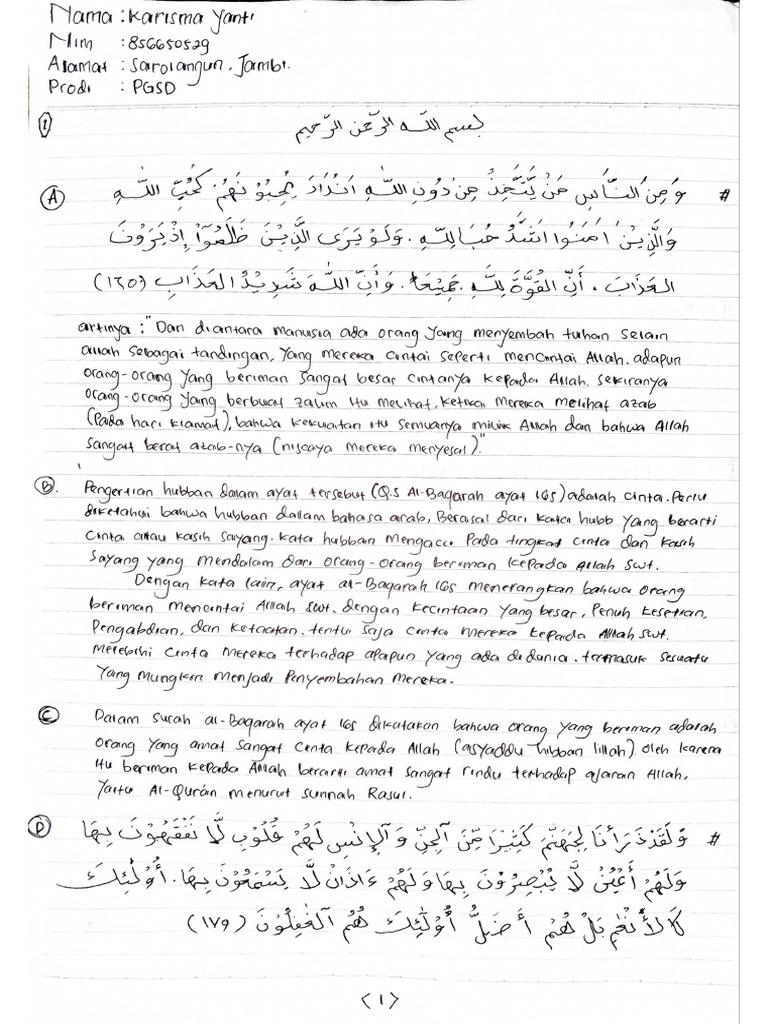 Nama : Karisma Yanti
Nim : 856650529
Alamat : Sarolangun. Jambi.
Prodi : PGSD
1
بسم الله الرّحمن الرّحيم
A وَمِنَ النَّاسِ مَنْ يَتَّخِذُ مِنْ دُونِ اللّٰهِ اَنْدَادَ يُحِبُّوْنَهُمْ كَحُبِّ اللّٰهِ #
وَالَّذِيْنَ اٰمَنُوا اَشَدُّ حُبَا لِلّٰهِ. وَلَوْ يَرَى الَّذِيْنَ ظَلَمُوْآ اِذْ يَرَوْنَ
العَذَابَ، أَنَّ القُوَّةَ لِلّٰهِ جَمِيْعَا. وَأَنَّ اللّٰهَ شَدِيْدُ العَذَابِ (١٦٥)
artinya : "Dan diantara manusia ada orang yang menyembah tuhan selain
allah sebagai tandingan, yang mereka cintai seperti mencintai Allah. adapun
orang-orang yang beriman sangat besar cintanya kepada Allah. sekiranya
orang-orang yang berbuat zalim itu melihat, ketika mereka melihat azab
(Pada hari kiamat), bahwa kekuatan itu semuanya milik Allah dan bahwa Allah
sangat berat azab-nya (niscaya mereka menyesal)."
B. Pengertian hubban dalam ayat tersebut (Q.S Al-Baqarah ayat 165) adalah cinta. Perlu
diketahui bahwa hubban dallam bahasa arab, Berasal dari kata hubb yang berarti
cinta atau kasih sayang. kata hubban mengacu pada tingkat cinta dan kasih
sayang yang mendalam dari orang-orang beriman kepada Allah swt.
Dengan kata lain, ayat al-Baqarah 165 menerangkan bahwa orang
beriman mencintai Alllah swt. dengan kecintaan yang besar, Penuh kesetian,
Pengabdian, dan ketaatan. tentu saja cinta mereka kepada Allah swt.
melebihi cinta mereka terhadap apapun yang ada di dunia. termasuk sesuatu
Yang mungkin menjadi Penyembahan mereka.
C Dalam surah al-Baqarah ayat 165 dikatakan bahwa orang yang beriman adalah
orang yang amat sangat cinta kepada Allah (asyaddu hibban lillah) oleh karena
itu beriman kepada Allah berarti amat sangat rindu terhadap ajaran Allah,
yaitu Al-Qurán menurut sunnah Rasul.
D وَلَقَدْ ذَرَأْنَا لِجَهَنَّمَ كَثِيْرَا مِّنَ ٱلْجِنِّ وَٱلإِنْسِ لَهُمْ قُلُوْبِ لَّا تَفْقَهُوْنَ بِهَا #
وَلَهُمْ أَعْيُنْ لَّا يُبْصِرُوْنَ بِهَا وَلَهُمْ ءَاذَانْ لَّا يَسْمَعُوْنَ بِهَا. أُوْلٰئِكَ
كَالأَنْعٰمِ بَلْ هُمْ أَضَلُّ أُوْلٰئِكَ هُمُ ٱلْغٰفِلُوْنَ (١٧٩)
<1>